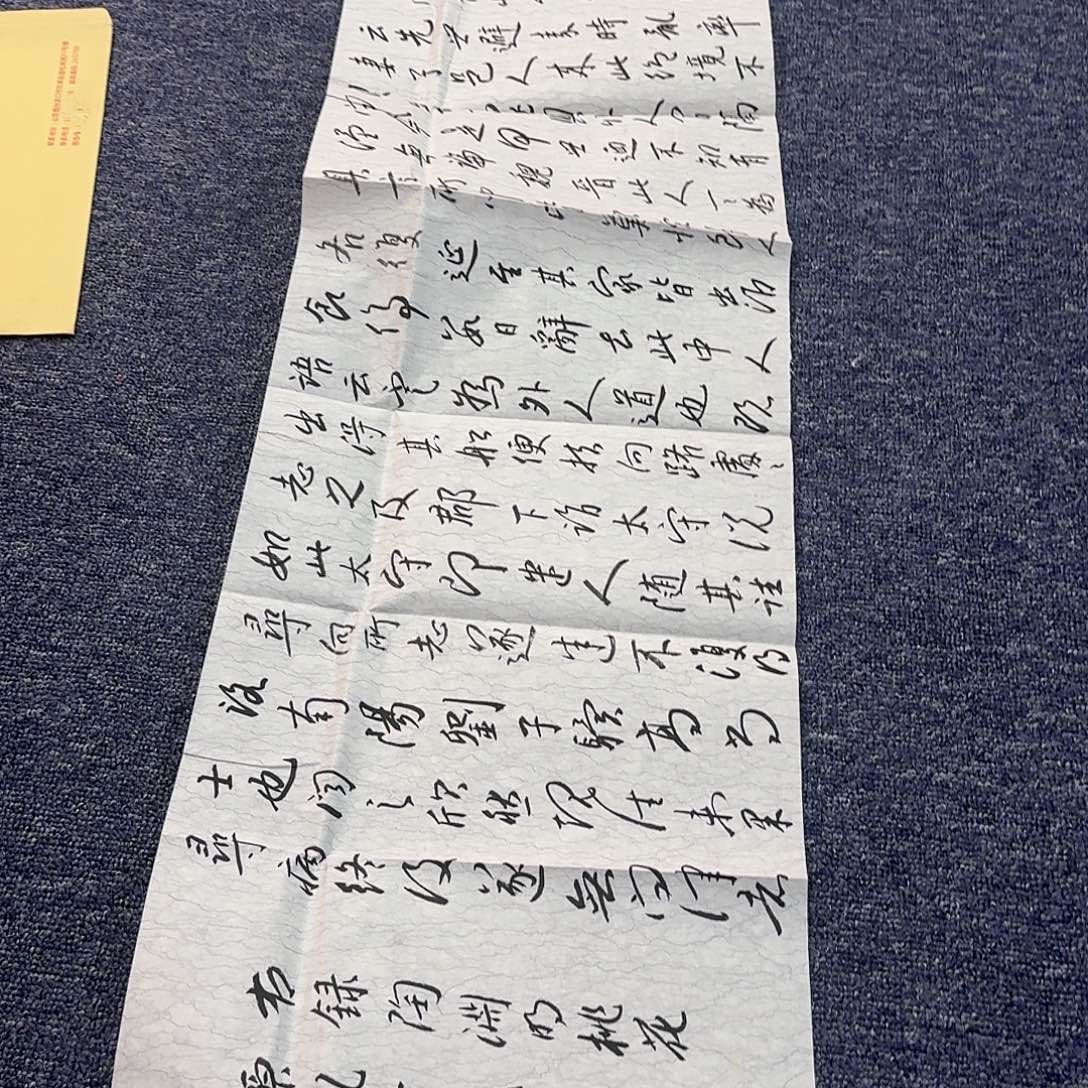 云先世避秦時亂率
妻子邑人來此絕境不
復出焉遂與外人間隔
問今是何世乃不知有
漢無論魏晉此人一一為
具言所聞皆嘆惋餘人
各復延至其家皆出酒
食停數日辭去此中人
語云不足為外人道也既
出得其船便扶向路處、
志之及郡下詣太守說
如此太守即遣人随其往
尋向所志遂迷不復得
路南陽劉子驥高尚
士也聞之欣然規往未果
尋病終後遂無問津者
右錄陶淵明桃花
源記